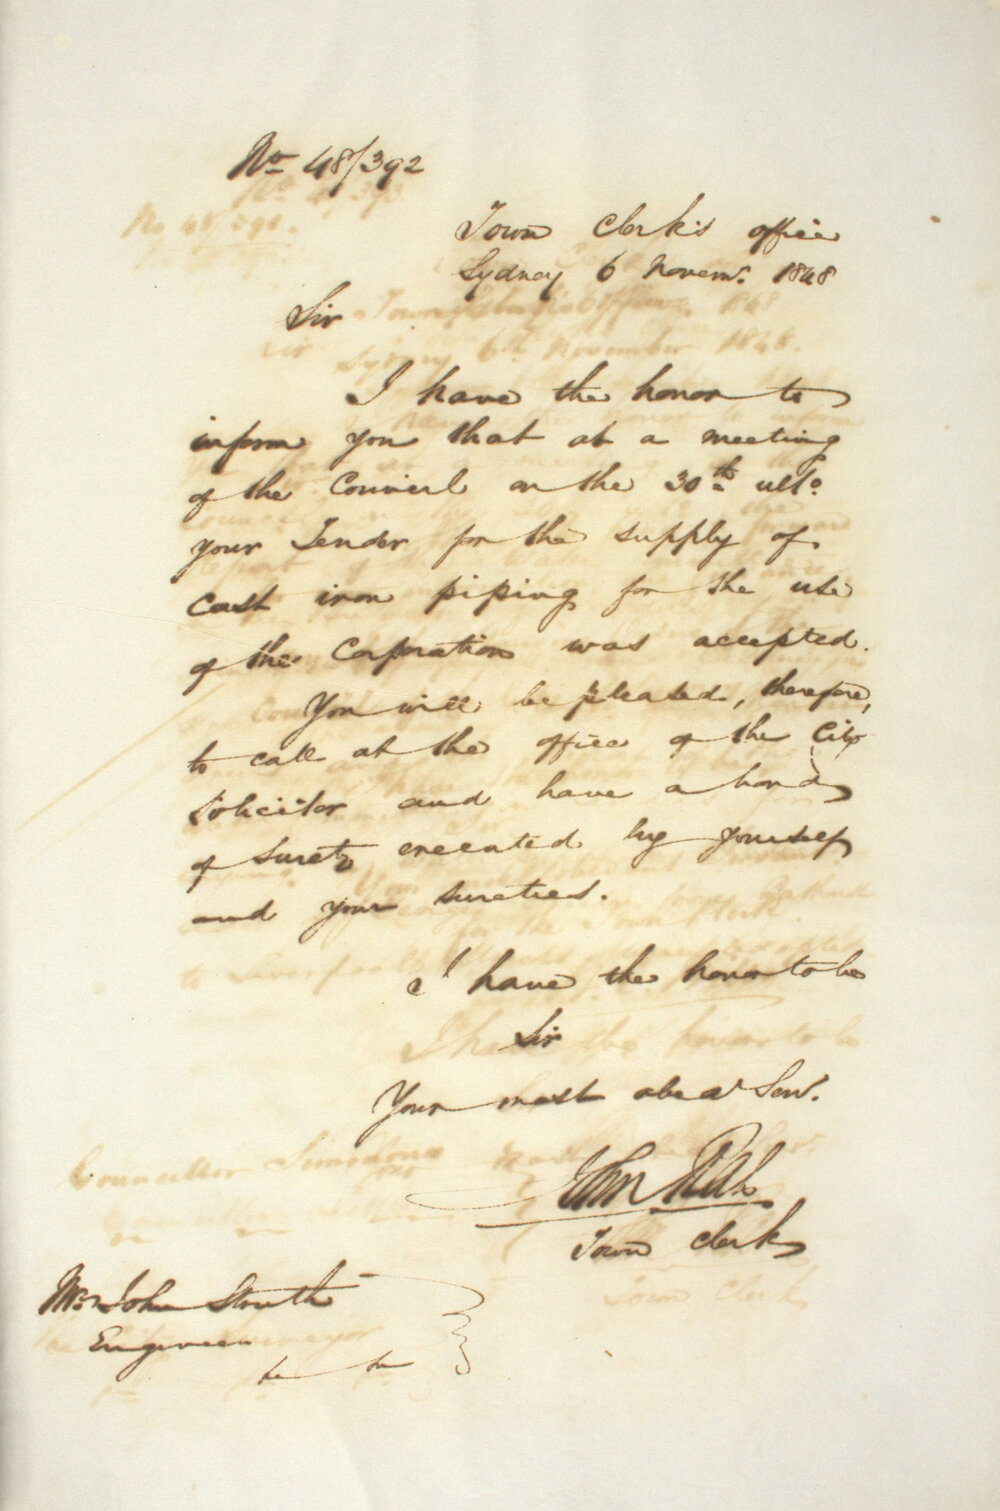 No 48/392
Town Clerk's office
Sydney 6 Novemr. 1848
Sir
I have the honor to
inform you that at a meeting
of the Council on the 30th ulto.
your Tender for the supply of
cast iron piping for the use
of the Corporation was accepted.
You will be pleased, therefore,
to call at the office of the City
Solicitor and have a bond
of surety executed by yourself
and your sureties.
I have the honor to be
Sir
Your most obedt Servt.
John
Town Clerk
Mr. John Struth
Engineer